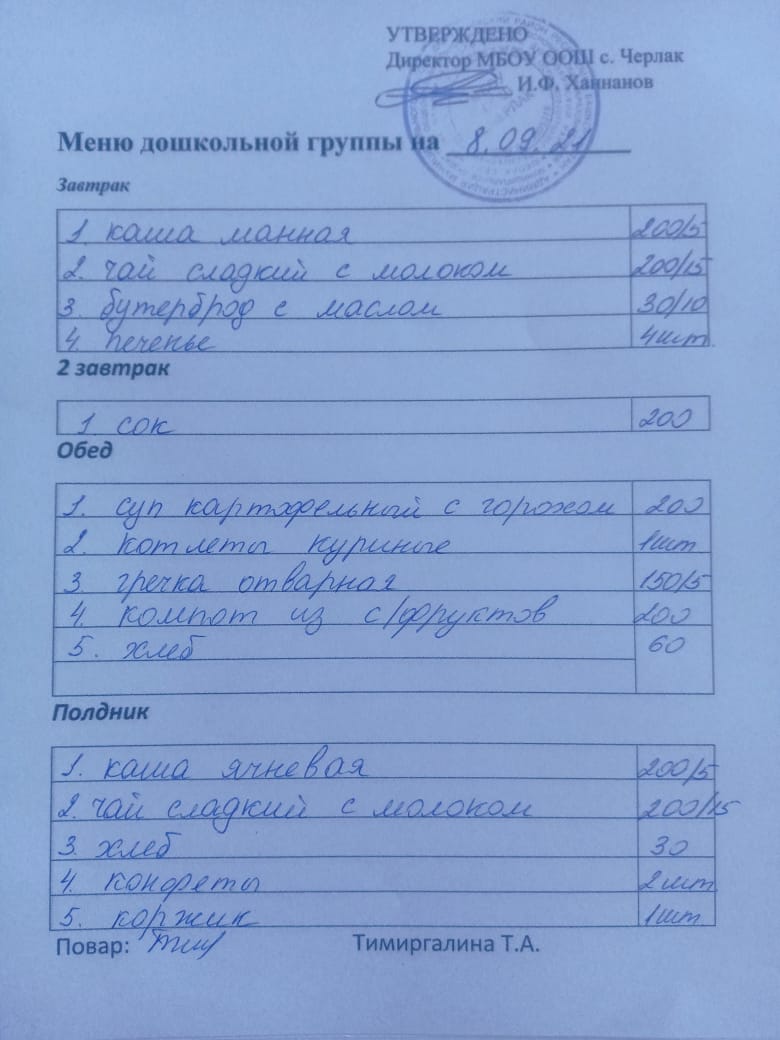 УТВЕРЖДЕНО
Директор МБОУ ООШ с. Черлак
И.Ф. Ханнанов
Меню дошкольной группы на 8.09.21
Завтрак
1. каша манная 200/5
2. чай сладкий с молоком 200/15
3. бутерброд с маслом 30/10
4. печенье 4шт
2 завтрак
1 сок 200
Обед
1. суп картофельный с горохом 200
2. котлеты куриные 1шт
3. гречка отварная 150/5
4. компот из с/фруктов 200
5. хлеб 60
Полдник
1. каша ячневая 200/5
2. чай сладкий с молоком 200/15
3. хлеб 30
4. конфеты 2шт
5. коржик 1шт.
Повар: Тимиргалина Т.А.